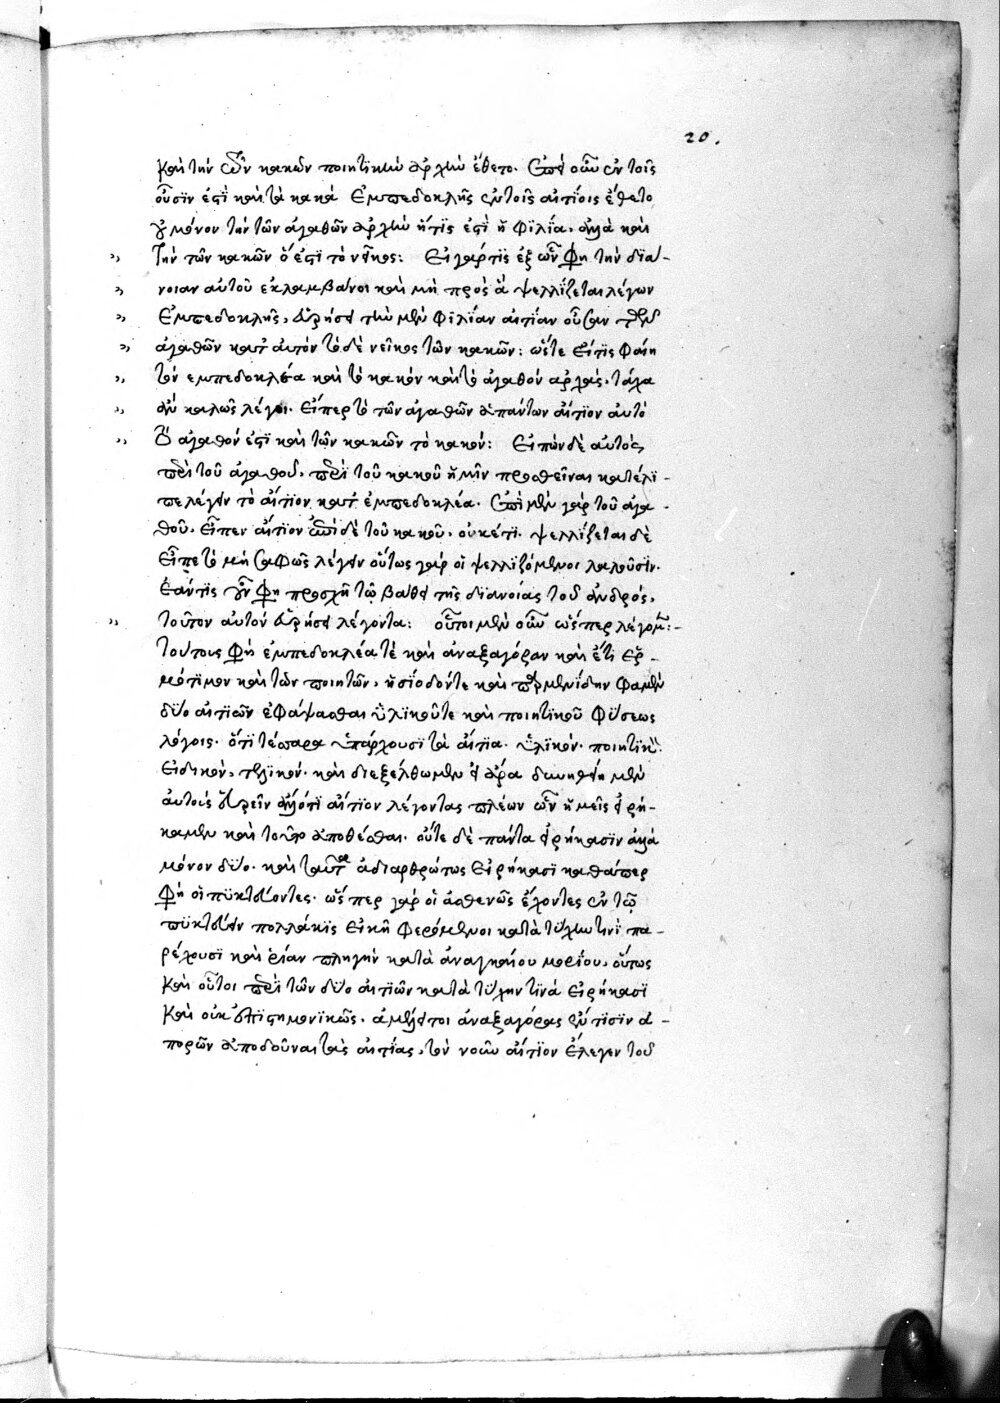 20.
καὶ τὴν τῶν κακῶν ποιητικὴν ἀρχὴν ἔθετο. ἐπεὶ οὖν ἐν τοῖς
οὖσιν ἐστὶ καὶ τὰ κακά Ἐμπεδοκλῆς ἐν τοῖς αἰτίοις ἔθετο
οὐ μόνον τὴν τῶν ἀγαθῶν ἀρχὴν ἥτις ἐστὶ ἡ φιλία, ἀλλὰ καὶ
» τὴν τῶν κακῶν ὅ ἐστι τὸ νεῖκος: Εἰ γάρ τις ἐξ ὧν φη τὴν διά-
» νοιαν αὐτοῦ ἐκλαμβάνοι καὶ μὴ πρὸς ἃ ψελλίζεται λέγων
» Ἐμπεδοκλῆς, εὑρήσει τὴν μὲν φιλίαν αἰτίαν οὖσαν τῶν
» ἀγαθῶν κατ' αὐτόν τὸ δὲ νεῖκος τῶν κακῶν: ὥστε εἴ τις φαίη
» τὸν ἐμπεδοκλέα καὶ τὸ κακὸν καὶ τὸ ἀγαθὸν ἀρχάς, τάχα
» ἂν καλῶς λέγοι. Εἴπερ τὸ τῶν ἀγαθῶν ἁπάντων αἴτιον αὐτὸ
» τὸ ἀγαθόν ἐστι καὶ τῶν κακῶν τὸ κακόν: Εἰπὼν δὲ αὐτὸς
περὶ τοῦ ἀγαθοῦ, περὶ τοῦ κακοῦ ἡμῖν προσθεῖναι κατέλι-
πε λέγειν τὸ αἴτιον κατ' ἐμπεδοκλέα. ἐπὶ μὲν γὰρ τοῦ ἀγα-
θοῦ, εἶπεν αἴτιον ἐπὶ δὲ τοῦ κακοῦ, οὐκέτι. ψελλίζεται δὲ
εἶπε τὸ μὴ σαφῶς λέγειν οὕτως γὰρ οἱ ψελλιζόμενοι λαλοῦσιν.
ἐάν τις οὖν φη προσχῆ τῷ βάθει τῆς διανοίας τοῦ ἀνδρός,
» τοῦτον αὐτὸν εὑρήσει λέγοντα: οὗτοι μὲν οὖν ὥσπερ λέγομεν:-
τούτους φη ἐμπεδοκλέα τὲ καὶ ἀναξαγόραν καὶ ἔτι ἑρ-
μότιμον καὶ τῶν ποιητῶν, ἡσίοδόν τε καὶ παρμενίδην φαμὲν
δύο αἰτιῶν ἐφάψασθαι ὑλικοῦ τε καὶ ποιητικοῦ φύσεως
λόγοις. ὅτι τέσσαρα ὑπάρχουσι τὰ αἴτια. ὑλικόν. ποιητικὸν.
εἰδικόν, τελικόν. καὶ διεξέλθωμεν εἰ ἄρα δυνηθείημεν
αὐτοὺς εὑρεῖν ἄλλό τι αἴτιον λέγοντας πλέων ὧν ἡμεῖς εἰρή-
καμεν καὶ τοῦτο ἀποθέσθαι. οὔτε δὲ πάντα εἰρήκασιν ἀλλὰ
μόνον δύο. καὶ ταῦτα ἀδιαρθρώτως εἰρήκασι καθάπερ
φη οἱ πυκτεύοντες. ὥσπερ γὰρ οἱ ἀσθενῶς ἔχοντες ἐν τῷ
πυκτεύειν πολλάκις εἰκῆ φερόμενοι κατὰ τύχην τινὶ πα-
ρέχουσι καιρίαν πληγὴν κατὰ ἀναγκαίου μορίου, οὕτως
καὶ οὗτοι περὶ τῶν δύο αἰτιῶν κατὰ τύχην τινὰ εἰρήκασι
καὶ οὐκ ἐπιστημονικῶς. ἀμέλει τοι ἀναξαγόρας ἔν τισιν ἀ-
πορῶν ἀποδοῦναι τὰς αἰτίας, τὸν νοῦν αἴτιον ἔλεγεν τοῦ